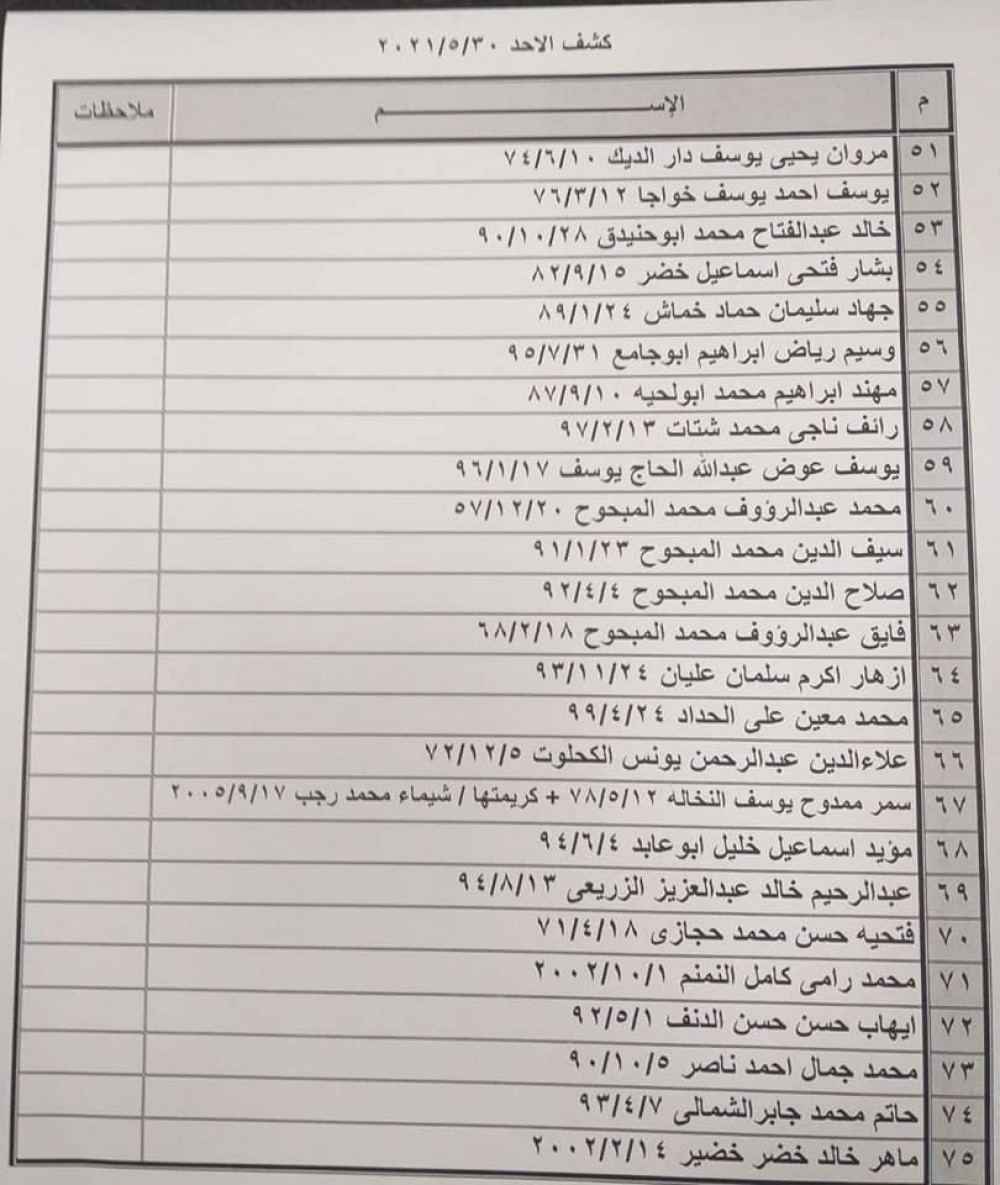 كشف الاحد ٢٠٢١/٥/٣٠
م الإســـم ملاحظات
٥١ مروان يحيى يوسف دار الديك ٧٤/٦/١٠
٥٢ يوسف احمد يوسف خواجا ٧٦/٣/١٢
٥٣ خالد عبدالفتاح محمد ابوحنيدق ٩٠/١٠/٢٨
٥٤ بشار فتحى اسماعيل خضر ٨٢/٩/١٥
٥٥ جهاد سليمان حماد خماش ٨٩/١/٢٤
٥٦ وسيم رياض ابراهيم ابوجامع ٩٥/٧/٣١
٥٧ مهند ابراهيم محمد ابولحيه ٨٧/٩/١٠
٥٨ رائف ناجى محمد شتات ٩٧/٢/١٣
٥٩ يوسف عوض عبدالله الحاج يوسف ٩٦/١/١٧
٦٠ محمد عبدالرؤوف محمد المبحوح ٥٧/١٢/٢٠
٦١ سيف الدين محمد المبحوح ٩١/١/٢٣
٦٢ صلاح الدين محمد المبحوح ٩٢/٤/٤
٦٣ فايق عبدالرؤوف محمد المبحوح ٦٨/٢/١٨
٦٤ ازهار اكرم سلمان عليان ٩٣/١١/٢٤
٦٥ محمد معين على الحداد ٩٩/٤/٢٤
٦٦ علاءالدين عبدالرحمن يونس الكحلوت ٧٢/١٢/٥
٦٧ سمر ممدوح يوسف النخاله ٧٨/٥/١٢ + كريمتها / شيماء محمد رجب ٢٠٠٥/٩/١٧
٦٨ مؤيد اسماعيل خليل ابوعابد ٩٤/٦/٤
٦٩ عبدالرحيم خالد عبدالعزيز الزريعى ٩٤/٨/١٣
٧٠ فتحيه حسن محمد حجازى ٧١/٤/١٨
٧١ محمد رامى كامل النمنم ٢٠٠٢/١٠/١
٧٢ ايهاب حسن حسن الدنف ٩٢/٥/١
٧٣ محمد جمال احمد ناصر ٩٠/١٠/٥
٧٤ حاتم محمد جابرالشمالى ٩٣/٤/٧
٧٥ ماهر خالد خضر خضير ٢٠٠٢/٢/١٤